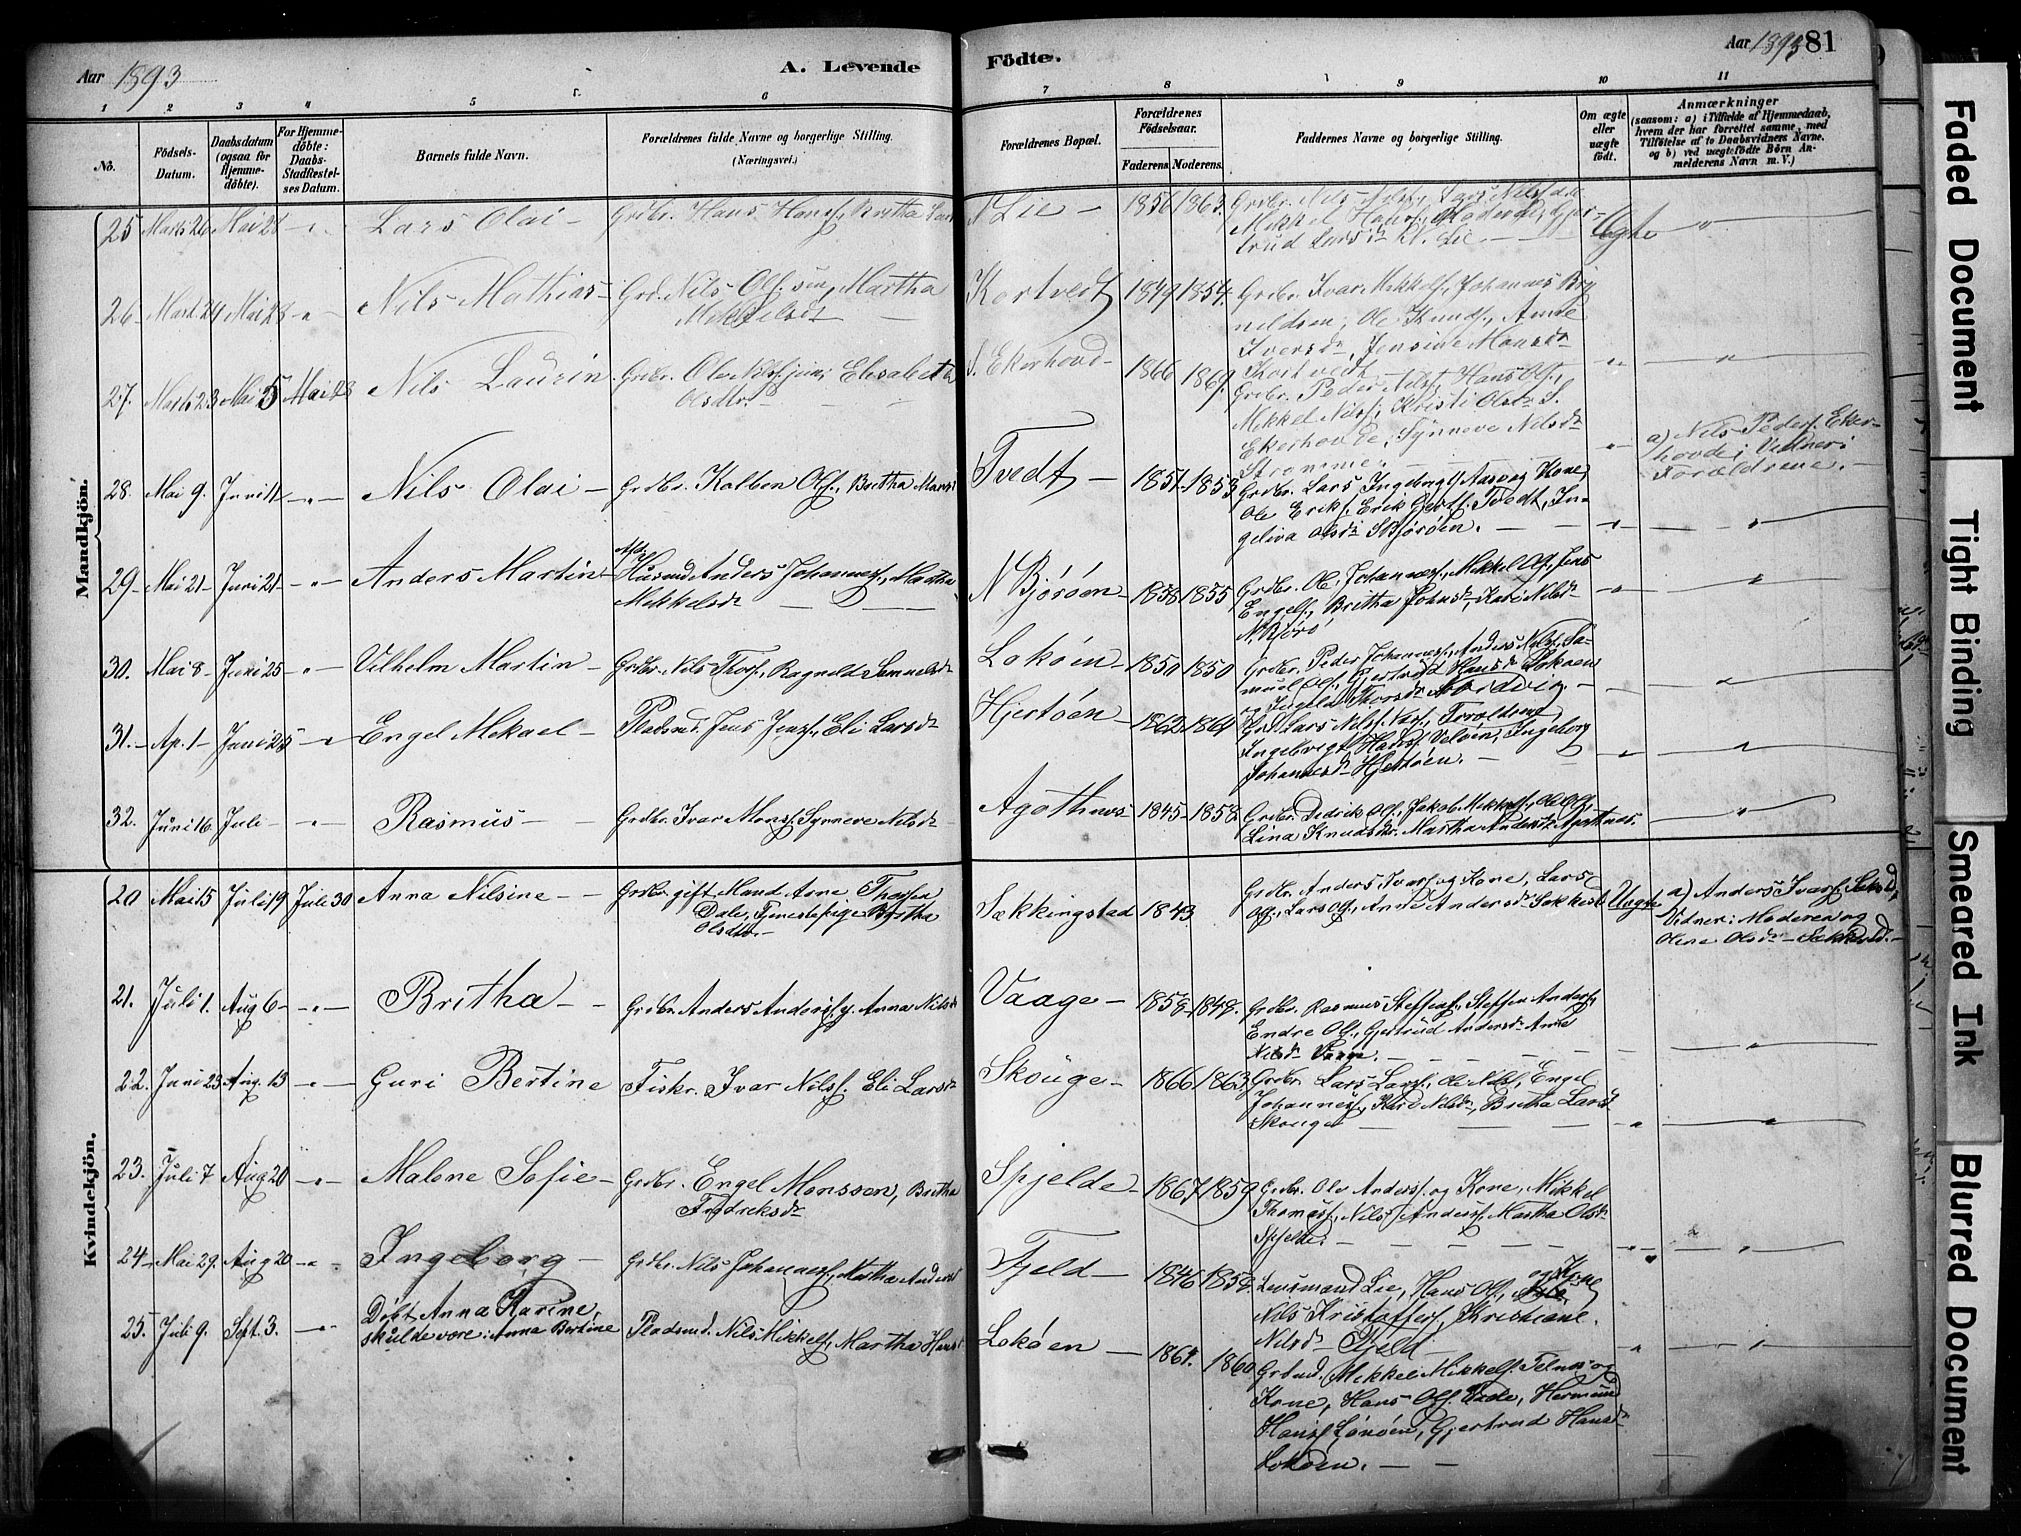 Aar 1893
A. Levende
Födte.
Aar 1893 81
1 2 3 4 5 6
7 8 9 10 11
No.
Födsels-
Datum.
Daabsdatum
(ogsaa for
Hjemme-
döbte).
For Hjemme-
döbte:
Daabs-
Stadfæstel-
ses Datum.
Barnets fulde Navn.
Forældrenes fulde Navne og borgerlige Stilling.
(Næringsvei.)
Forældrenes Bopæl.
Forældrenes
Födselsaar.
Faderens. Moderens.
Faddernes Navne og borgerlige Stilling.
Om ægte
eller
uægte
født.
Anmærkninger
(saasom: a) i Tilfælde af Hjemmedaab,
hvem der har forrettet samme, med
Tilföielse af to Daabsvidners Navne.
og b) ved uægtefödte Börn An-
melderens Navn m. V.)
Mandkjön.
25 Marts 26 Mai 28 - " - Lars Olai - Grdbr. Hans Hansf., Britha Lars
Lie - 1856 1863. Grdbr. Nils Nilsf., Lars Nilsf.
Mekkel Hansf.
trud Larsdr. Lie - Ægte "
26 - Marts 24 Mai 28 - " - Nils Mathias - Grd. Nils Olf. sen, Martha
Mekkelsdr -
Kortvedt 1849 1854. Grdbr. Ivar Mekkelf., Johannes Bry
neldsen, Ole Knudf., Anne
Iversdr, Jensine Monsdr
Kortvedt " "
27. Marts 23 Mai 5 Mai 28 Nils Laurin Grdbr. Ole Nilsf. jun., Elisabeth
Olsdtr.
S. Ekerhovd - 1866 1869. Grdbr. Peder Nilsf., Hans Olf.,
Mekkel Nilsf., Kristi Olsdr S.
Ekerhovde, Synneve Nilsdr
Strømme. - " a) Nils Pedersf. Eker-
hovde; Vidner:
Forældrene. -
28. Mai 9. Juni 11 - " - Nils Olai - Grdbr. Kalben Olf., Britha Mons
Tvedt - 1851 - 1853 Grdbr. Lars Ingebrigt Aasvag Kone,
Ole Erikf., Erik Gjertf. Tvedt, In-
geliva Olsdr S Bjørøen. - - " - "
29 - Mai 21 - Juni 21 - " - Anders Martin - Husmd Anders Johannesf., Martha
Mekkelsdr -
N Bjørøen - 1858 1855 Grdbr. Ole Johannesf., Mekkel Olf., Jens
Engelf., Britha Johnsdr, Kari Nilsdr
N. Bjørø - " - "
30. Mai 8 - Juni 25 - " - Vilhelm Martin - Grdbr. Nils Thorf., Ragnilde Samuelsdr
Lokøen - 1850 1850 Grdbr. Peder Johannesf., Anders Nilsf., Sa-
muel Olf., Gjertrud Hansdr Lokøen
og Ingeb. Thorsdr Nordvig. - " "
31. - Ap. 1 - Juni 25 - " Engel Mekael - Pladsmd. Jens Jensf., Eli Larsdr
Hjertøen - 1862 1864 Grd. Lars Nilsf. Forældrene,
Ingebrigt Hansf. Veløen, Ingeborg
Johannesdr Hjertøen. - " "
32. Juni 16. Juli - " - Rasmus - Grdbr. Ivar Monsf. Synneve Nilsdr
Agothnes 1845 - 1858. Grdbr. Didrik Olf., Jakob Mekkelf., Ole Olf.,
Lina Knudsdr. Martha Andersdr Agothnes. "
Kvindekjön.
20 Mai 15 Juli 19 Juli 30 Anna Nilsine - Grdbr. gift Mand Arne Thorsen
Dale, Tjenestepige Britha
Olsdtr. -
Sækkingstad 1843. Grdbr. Anders Ivarsf. og Kone, Lars
Olf., Lars Olf., Anne Andersdr Sækkest. Uægte a) Anders Ivarsf. Sækst.
Vidner: Moderen og
Olene Olsdr - Sækkest. -
21. Juli 1. Aug 6 - - " - Britha - Grdbr. Anders Andersf. g. Anna Nilsdr
Vaage - 1858 - 1849. Grdbr. Rasmus Steffenf., Steffen Andersf.,
Endre Olf., Gjertrud Andersdr Anne
Nilsdr Vaage. - "
22. Juni 23 Aug. 13 - " - Guri Bertine Fiskr. Ivar Nilsf. Eli Larsdr
Skouge - 1866 1863 Grdbr. Lars Larsf., Ole Nilsf., Engel
Johannesf., Kari Nilsdr, Britha Larsdr
Skouge - " "
23. Juli 7 Aug 20 - " - Malene Sofie - Grdbr. Engel Monssen, Britha
Fredriksdr
Spjelde - 1867 1859 Grdbr. Ole Andersf. og Kone, Mikkel
Thomasf., Nils Andersf. Martha Olsdr
Spjelde. - " "
24 - Mai 29. Aug 20 - " Ingeborg - Grdbr. Nils Johannesf., Martha Anders
Fjeld - 1846 1858. Lensmand Lie, Hans Olf., og Kone
Nils Kristoffersf., Kristiane
Nilsdr Fjeld - " "
25. Juli 9. Sept. 3. - " - Döbt Anna Karine,
skulde være: Anna Bertine Pladsmd. Nils Mikkelf., Martha Hansd
Lokøen - 1864. 1860 Grdmd. Mekkel Mikkelf. Telnes og
Kone, Hans Olf. Eide, Hermund
Hansf. Lønøen, Gjertrud Hansdr
Lokøen. - -
Faded Document
Tight Binding
Smeared Ink
Blurred Document